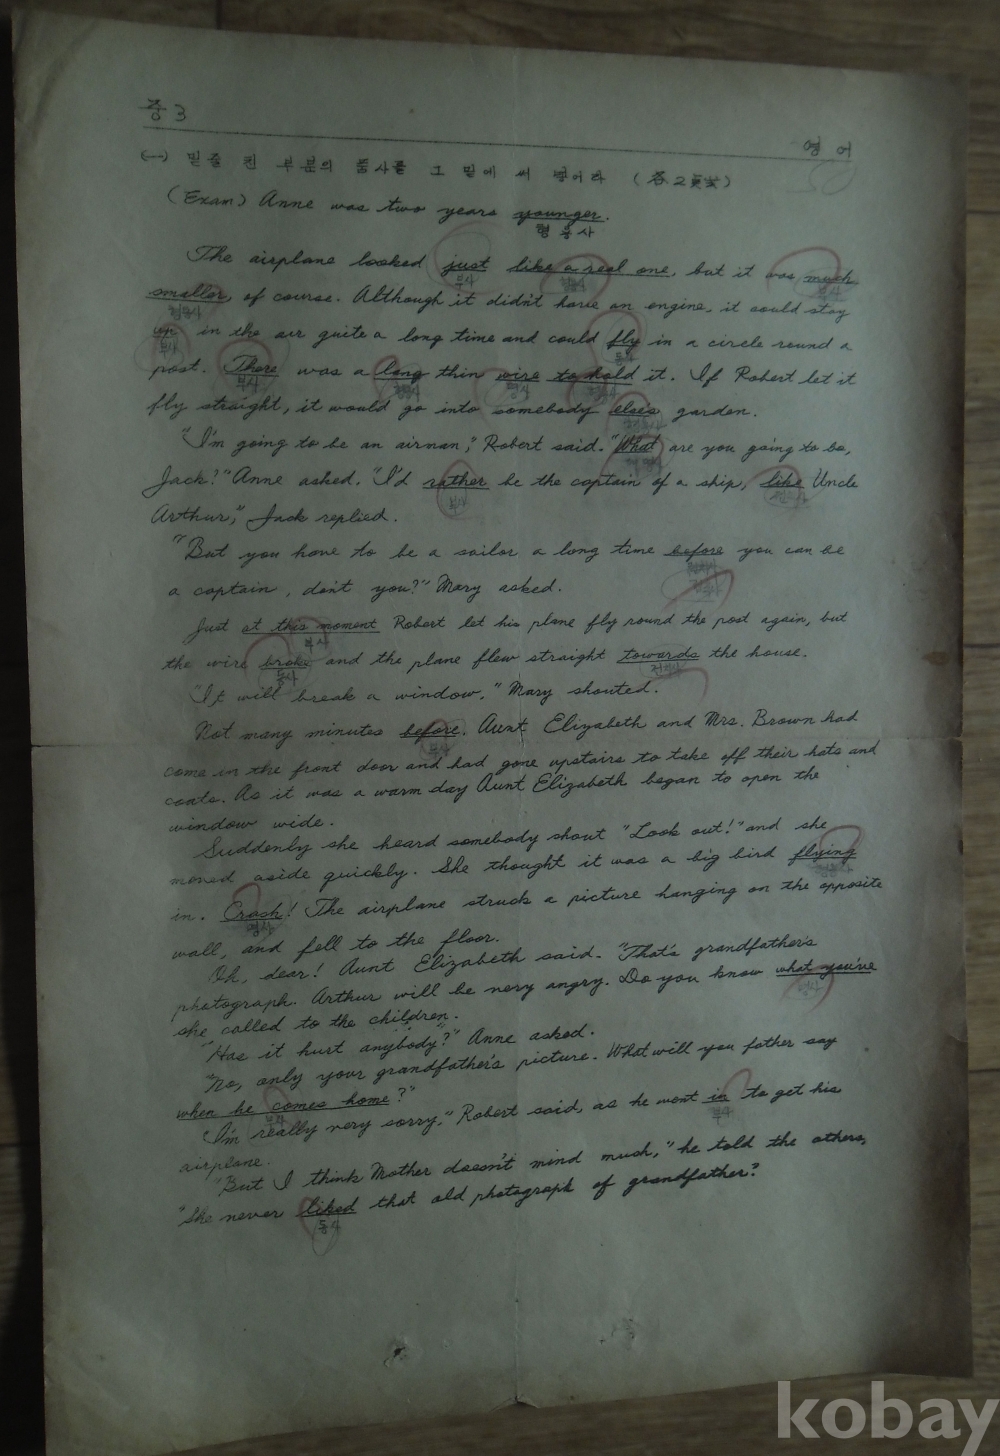 중 3
영 어
50
(一) 밑줄 친 부분의 품사를 그 밑에 써 넣어라 (各2点式)
(Exam) Anne was two years younger.
형용사
The airplane looked just like a real one, but it was much
부사 형용사 부사
smaller, of course. Although it didn't have an engine, it could stay
형용사
up in the air quite a long time and could fly in a circle round a
부사 동사
post. There was a long thin wire to hold it. If Robert let it
부사 형용사 명사 형용사
fly straight, it would go into somebody else's garden.
"I'm going to be an airman," Robert said. "What are you going to be,
Jack?" Anne asked. "I'd rather be the captain of a ship, like Uncle
부사 전치사
Arthur," Jack replied.
"But you have to be a sailor a long time before you can be
접속사
a captain, don't you?" Mary asked.
Just at this moment Robert let his plane fly round the post again, but
부사
the wire broke and the plane flew straight towards the house.
동사 전치사
"It will break a window," Mary shouted.
Not many minutes before, Aunt Elizabeth and Mrs. Brown had
부사
come in the front door and had gone upstairs to take off their hats and
coats. As it was a warm day Aunt Elizabeth began to open the
window wide.
Suddenly she heard somebody shout "Look out!" and she
moved aside quickly. She thought it was a big bird flying
형용사
in. Crash! The airplane struck a picture hanging on the opposite
명사
wall, and fell to the floor.
Oh, dear! Aunt Elizabeth said. "That's grandfather's
photograph. Arthur will be very angry. Do you know what you've
명사
she called to the children.
"Has it hurt anybody?" Anne asked.
"No, only your grandfather's picture. What will you father say
when he comes home?"
부사
"I'm really very sorry," Robert said, as he went in to get his
부사
airplane.
"But I think Mother doesn't mind much," he told the others,
"She never liked that old photograph of grandfather?
동사
kobay